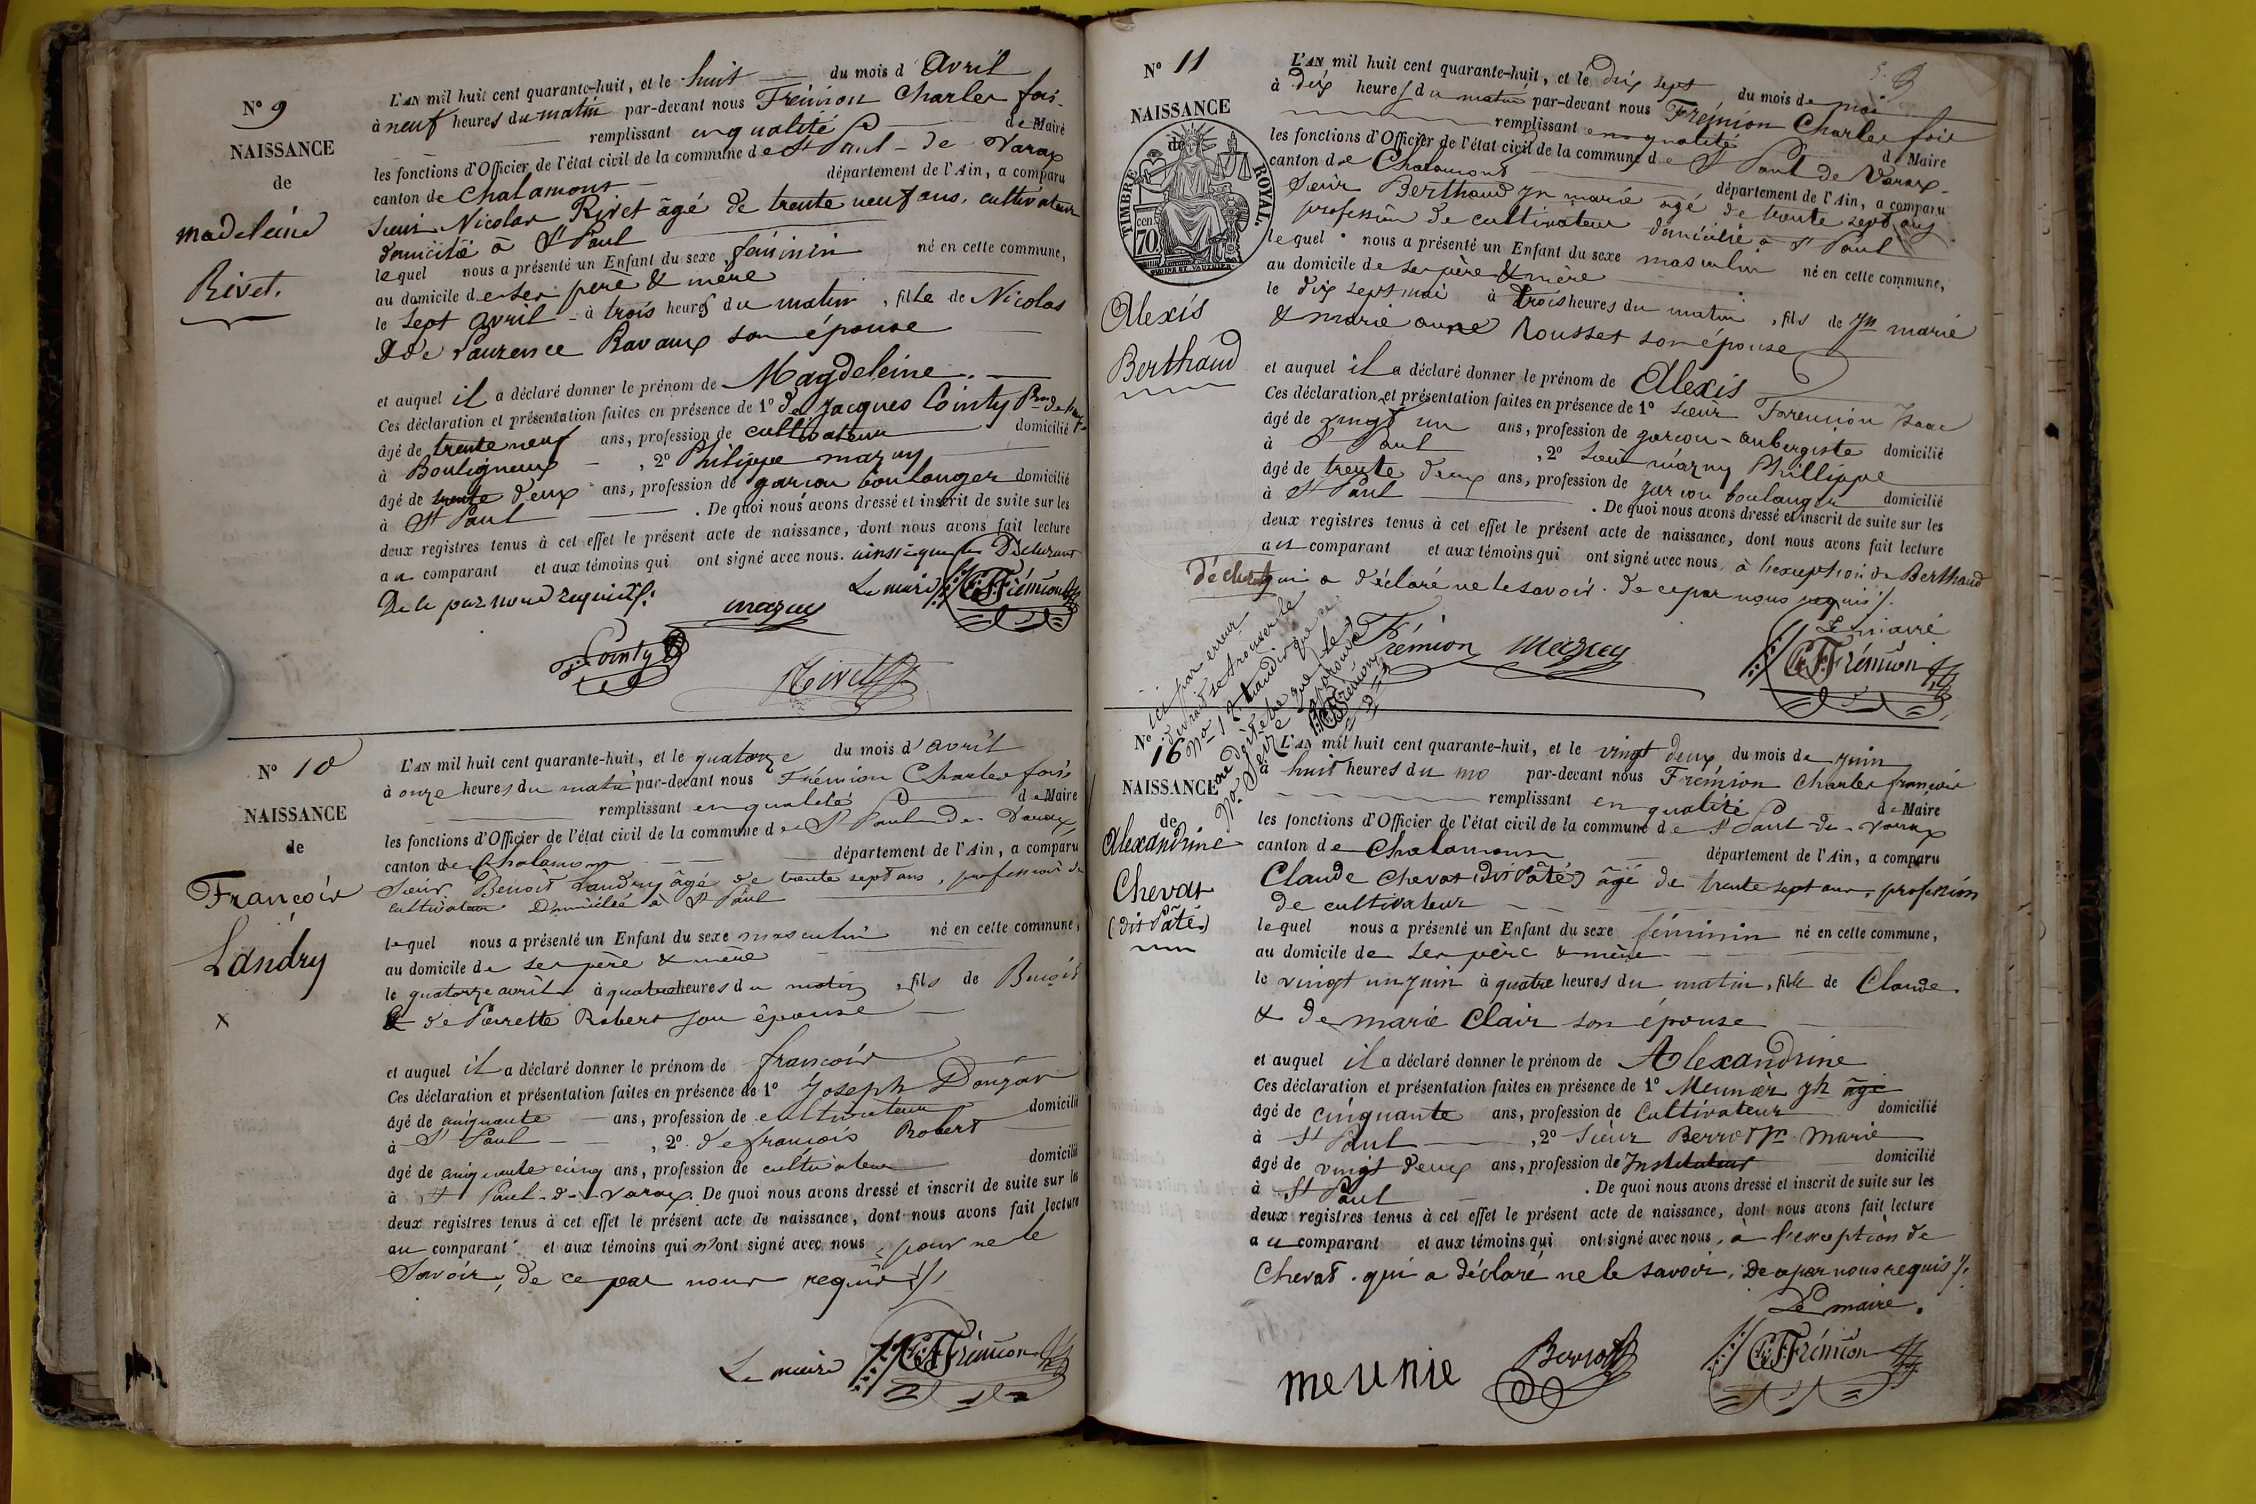 N° 9
NAISSANCE
de
Madeleine
Rivet.
L'AN mil huit cent quarante-huit, et le huit du mois d'avril
à neuf heures du matin par-devant nous Frémion Charles fois
remplissant en qualité de Maire
les fonctions d'Officier de l'état civil de la commune de St Paul-de Varax
canton de Chalamont département de l'Ain, a comparu
Sieur Nicolas Rivet âgé de trente neuf ans, cultivateur
domicilié à St Paul
lequel nous a présenté un Enfant du sexe féminin né en cette commune,
au domicile de ses père & mère
le sept avril à trois heures du matin, fille de Nicolas
& de Laurence Ravaux son épouse
et auquel il a déclaré donner le prénom de Magdeleine.
Ces déclaration et présentation faites en présence de 1° de Jacques Cointy
âgé de trente neuf ans, profession de cultivateur domicilié
à Bouligneux, 2° Philippe Mazuy
âgé de trente deux ans, profession de garçon boulanger domicilié
à St Paul. De quoi nous avons dressé et inscrit de suite sur les
deux registres tenus à cet effet le présent acte de naissance, dont nous avons fait lecture
au comparant et aux témoins qui ont signé avec nous. ainsi que le Déclarant
De ce par nous requis. Le maire CF Frémion
mazuy
Cointy
Rivet
N° 10
NAISSANCE
de
François
Landry
x
L'AN mil huit cent quarante-huit, et le quatorze du mois d'avril
à onze heures du matin par-devant nous Frémion Charles fois
remplissant en qualité de Maire
les fonctions d'Officier de l'état civil de la commune de St Paul de Varax
canton de Chalamont département de l'Ain, a comparu
Sieur Benoît Landry âgé de trente sept ans, profession de
cultivateur Domicilié à St Paul
lequel nous a présenté un Enfant du sexe masculin né en cette commune,
au domicile de ses père & mère
le quatorze avril à quatre heures du matin, fils de Benoît
& de Pierrette Robert son épouse
et auquel il a déclaré donner le prénom de françois
Ces déclaration et présentation faites en présence de 1° Joseph
âgé de cinquante ans, profession de cultivateur domicilié
à St Paul, 2° de françois Robert
âgé de cinquante cinq ans, profession de cultivateur domicilié
à St Paul-de-Varax. De quoi nous avons dressé et inscrit de suite sur les
deux registres tenus à cet effet le présent acte de naissance, dont nous avons fait lecture
au comparant et aux témoins qui n'ont signé avec nous, pour ne le
Savoir, de ce par nous requis
Le maire CF Frémion
N° 11
NAISSANCE
de
TIMBRE ROYAL.
70 cen
Alexis
Berthaud
L'AN mil huit cent quarante-huit, et le dix sept du mois de mai
à dix heures du matin par-devant nous Frémion Charles fois
remplissant en qualité de Maire
les fonctions d'Officier de l'état civil de la commune de St Paul de Varax
canton de Chalamont département de l'Ain, a comparu
Sieur Berthaud Jn marie âgé de trente sept ans
profession de cultivateur domicilié à St Paul
lequel nous a présenté un Enfant du sexe masculin né en cette commune,
au domicile de ses père & mère
le dix sept mai à trois heures du matin, fils de Jn marie
& marie anne Rousset son épouse
et auquel il a déclaré donner le prénom de Alexis
Ces déclaration et présentation faites en présence de 1° Sieur Frémion Isaac
âgé de vingt un ans, profession de garçon-aubergiste domicilié
à St Paul, 2° Sieur mazuy Phillippe
âgé de trente deux ans, profession de garçon boulanger domicilié
à St Paul. De quoi nous avons dressé et inscrit de suite sur les
deux registres tenus à cet effet le présent acte de naissance, dont nous avons fait lecture
au comparant et aux témoins qui ont signé avec nous, à l'exception de Berthaud
déclart qui a déclaré ne le savoir. de ce par nous requis
Le maire
Frémion Mazuy CF Frémion
ici par erreur
devrait se trouver le
No 12 tandis que ce
doit être que le
No Seize approuvé
CF Frémion
N° 16
NAISSANCE
de
Alexandrine
Chevat
(dit Pâté)
L'AN mil huit cent quarante-huit, et le vingt deux du mois de juin
à huit heures du mo par-devant nous Frémion Charles françois
remplissant en qualité de Maire
les fonctions d'Officier de l'état civil de la commune de St Paul-de-Varax
canton de Chalamont département de l'Ain, a comparu
Claude Chevat (dit Pâté) âgé de trente sept ans, profession
de cultivateur
lequel nous a présenté un Enfant du sexe féminin né en cette commune,
au domicile de ses père & mère
le vingt un juin à quatre heures du matin, fille de Claude
& de marie Clair son épouse
et auquel il a déclaré donner le prénom de Alexandrine
Ces déclaration et présentation faites en présence de 1° Meunier Jh âgé
âgé de cinquante ans, profession de Cultivateur domicilié
à St Paul, 2° Sieur Berrot Jn Marie
âgé de vingt deux ans, profession de Instituteur domicilié
à St Paul. De quoi nous avons dressé et inscrit de suite sur les
deux registres tenus à cet effet le présent acte de naissance, dont nous avons fait lecture
au comparant et aux témoins qui ont signé avec nous, à l'exception de
Chevat. qui a déclaré ne le savoir, De ce par nous requis
Le maire.
meunie Berrot CF Frémion